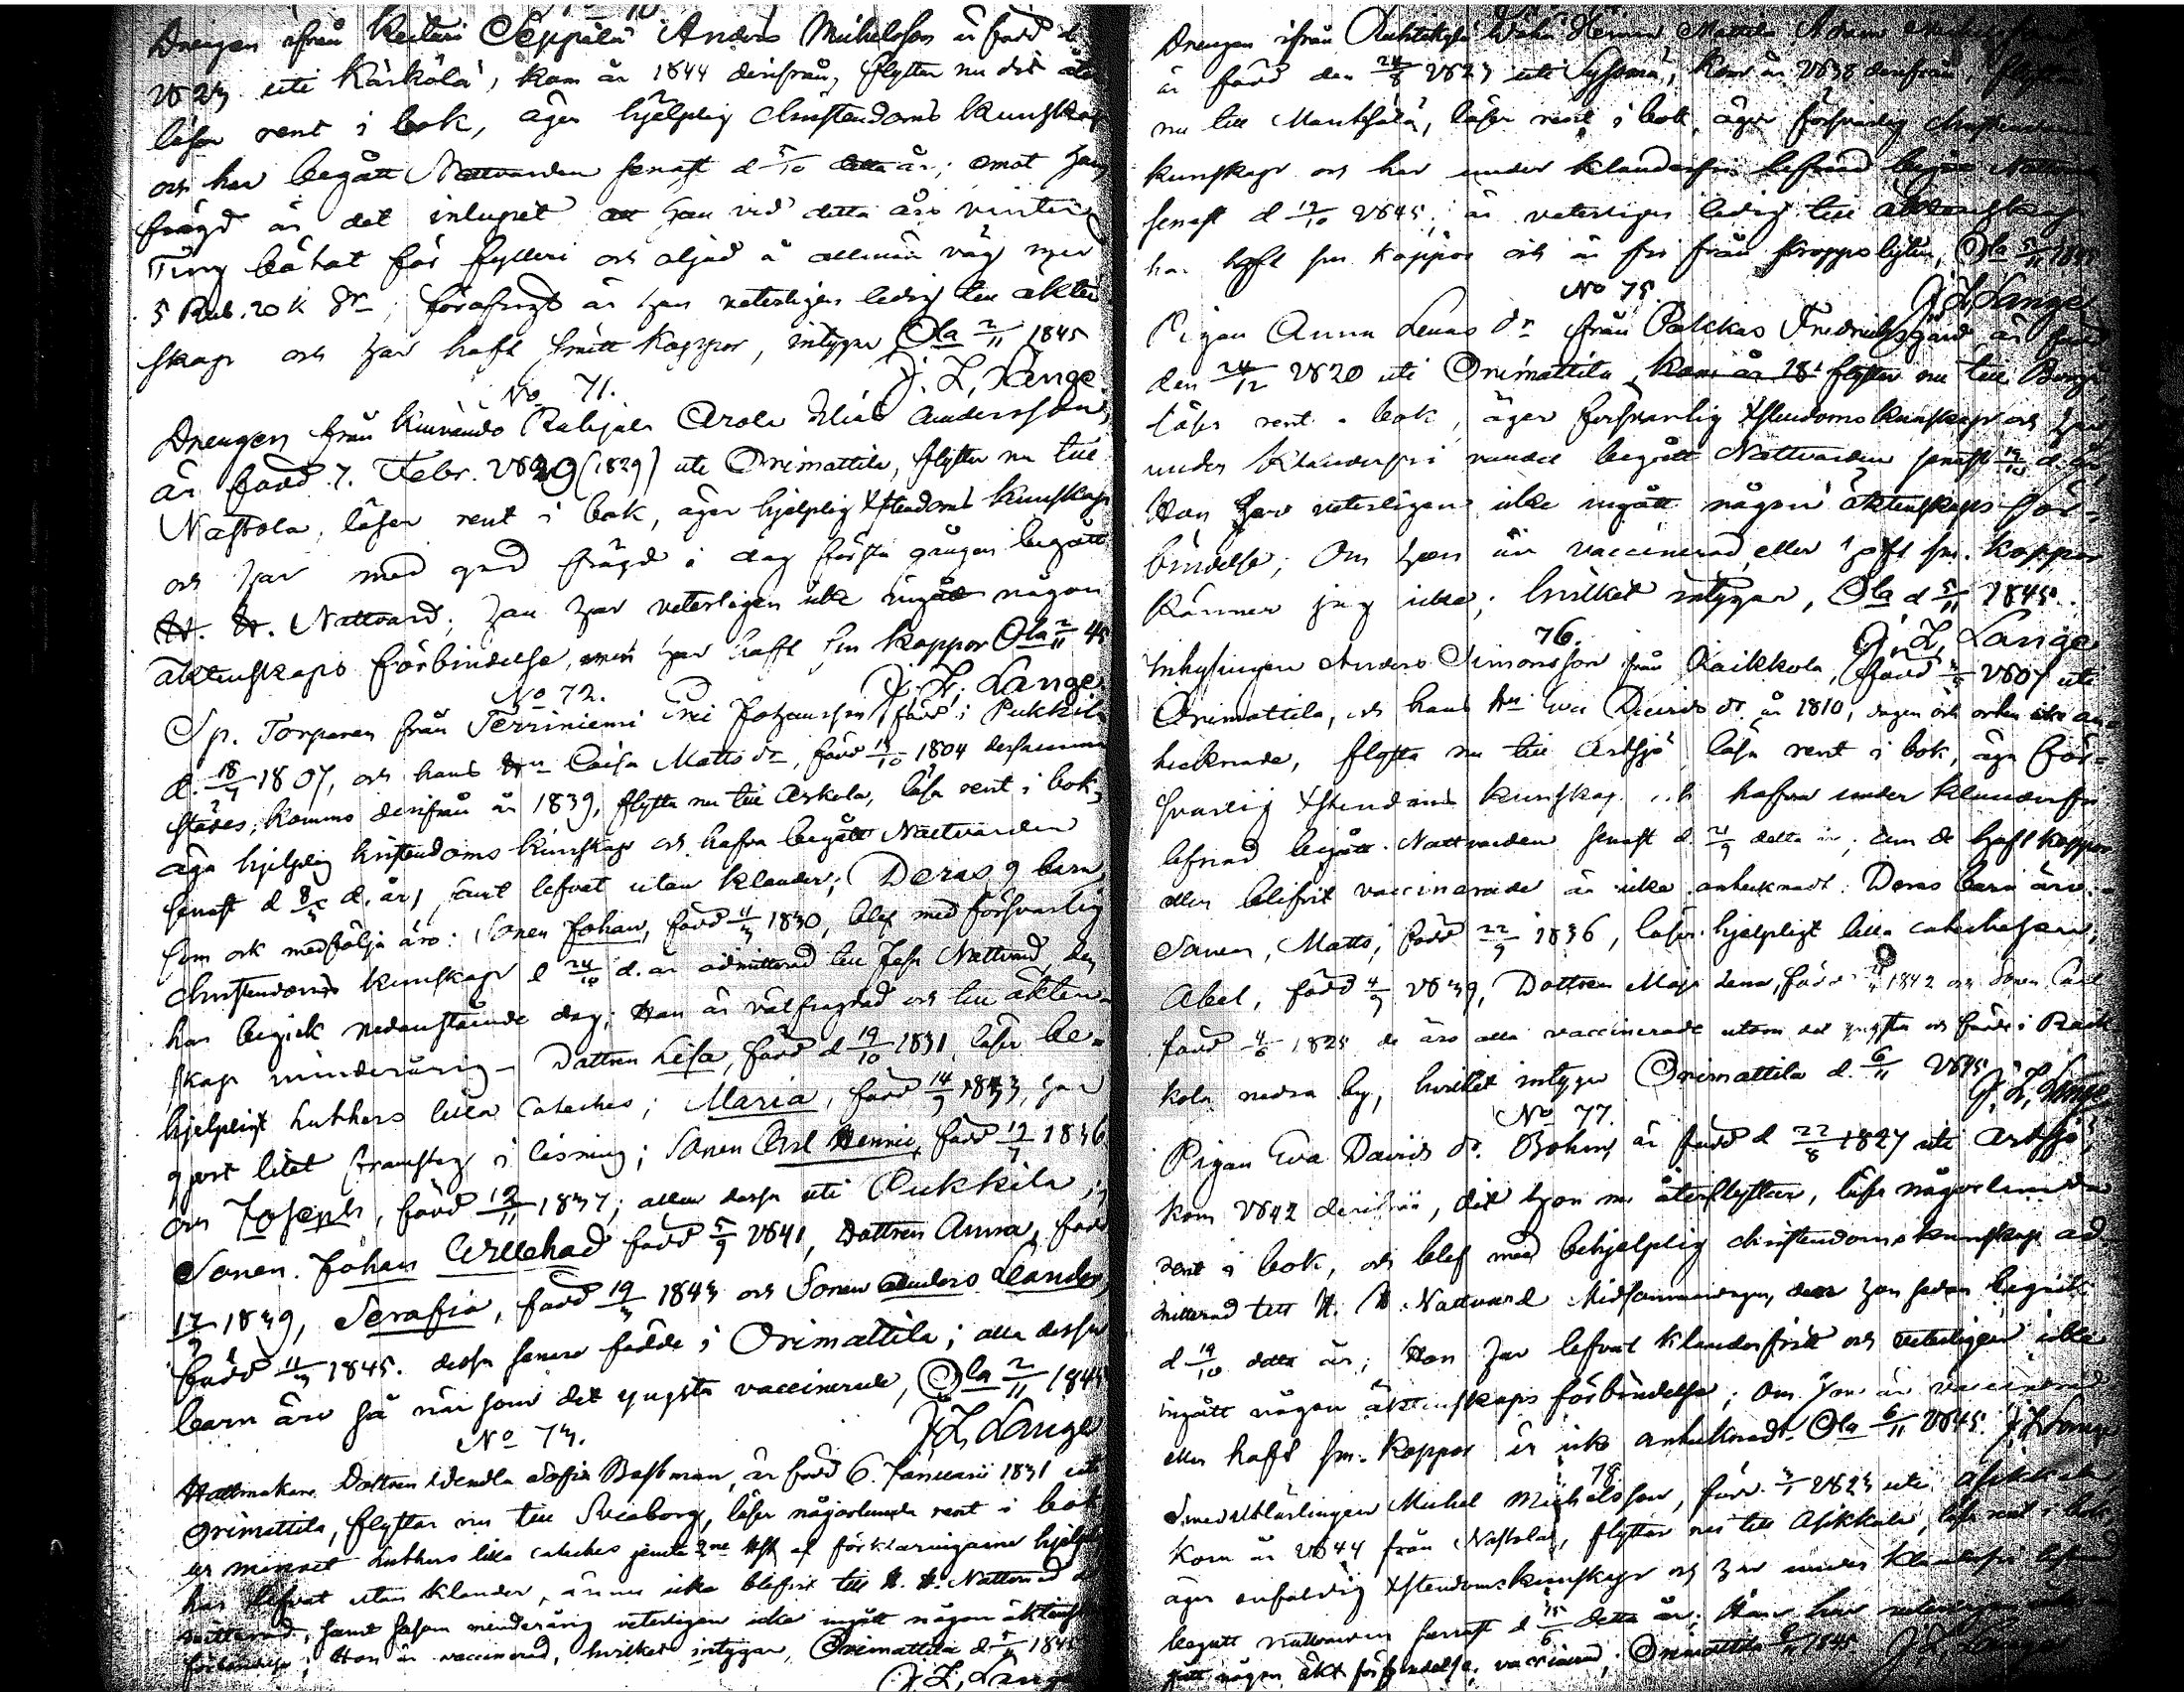 Drengen ifrån Keiteri Seppälä Anders Michelsson är född d
1823 uti Kärkölä, kom år 1844 derifrån, flyttar nu dit åter
läser rent i bok, äger hjelplig Christendoms kunskap
och har begått Nattvarden senast d 5/10 detta år; emot hans
frägd är det inlupet att han vid detta års vinter
Ting bötat för fylleri och oljud å allmän väg med
5 Rub. 20 k Sr; föröfrigt är han veterligen ledig till äkten
skap och har haft smått koppor, intygar Ola 2/11 1845
J. L. Lange
No 71.
Drengen från Kuivando Rahjala Arola Elias Andersson,
är född 7. Febr. 1829 (1829) uti Orimattila, flyttar nu till
Nastola, läser rent i bok, äger hjelplig Xstendoms kunskap
och har med god frägd i dag första gången begått
H. H. Nattvard; han har veterligen icke ingått någon
äktenskaps förbindelse, men har haft sm koppor Ola 2/11 45
J. L. Lange
No 72.
Sp. Torparen från Terriniemi Johansson, född i Pukkila
d. 18/7 1807, och hans Hu Caisa Matts dr, född 1804 dersamma
städes, kommo derifrån år 1839, flytta nu till Askola, läsa rent i bok,
äga hjelplig kristendoms kunskap och hafva begått Nattvarden
senast d d. år, samt lefvat utan klander; Deras 9 barn
som ock medfölja äro: Sonen Johan, född 11/3 1830, blef med försvarlig
Christendoms kunskap d 24/10 d. år admitterad till Nattvard, den
han begick nedanstående dag; Han är välfregdad och till äkten
skap minderårig – Dottren Lisa, född d 19/10 1831, läser be-
hjelpligt Luthers lilla Cateches; Maria, född 14/9 1833, har
gjort litet framsteg i läsning; Sonen Carl Henric, född 1836
och Joseph, född 12/11 1837; allan dessa uti Pukkila;
Sonen Johan Willehad född 5/9 1841, Dottren Anna, född
17/9 1839, Serafia, född 19/3 1843 och Sonen Anders Leander,
född 11/3 1845. dessa senare födde i Orimattila; alla dessa
barn äro så när som det yngsta vaccinerade, Ola 2/11 1845
J. L. Lange
No 73.
Hattmakare Dottren Wendla Sofia Bastman, är född 6. Januarii 1831 uti
Orimattila, flyttar nu till Sveaborg, läser någorlunda rent i bok
ur minnet Luthers lilla cateches jemte af förklaringarne hjelpl
har lefvat utan klander, ännu icke blifvit till H. H. Nattvard ad
mitterad, samt såsom minderårig veterligen icke ingått någon äktensk
förbindelse; Hon är vaccinerad, hvilket intygar, Orimattila d. 5/11 1845
J. L. Lange
Drengen ifrån Heinä Mattila Adam
är född den 24/8 1823 uti Sysmä, kom år 1838 derifrån, flyttar
nu till Mäntsälä, läser rent i bok, äger försvarlig Christendoms
kunskap och har under klanderfri lefnad begått Nattvard
senast d 12/10 1845; är veterligen ledig till äktenskap
har haft sm koppor och är fri från kroppslyten, Ola 5/11 1845
J. L. Lange
No 75.
Pigan Anna Lenas dr från Pakkas Fredriksgård, är född
den 24/12 1820 uti Orimattila, kom år 18 flyttar nu till Borgå,
läser rent i bok, äger försvarlig Xstendoms kunskap och har
under klanderfri vandel begått Nattvarden senast 12/10 d. år
Hon har veterligen icke ingått någon äktenskaps för-
bindelse; Om hon är vaccinerad eller haft sm. koppor
känner jag icke; hvilket intygar, Ola d 5/11 1845.
J. L. Lange
76.
Inhysingen Anders Simonsson från Raikkola, född 1807 uti
Orimattila, och hans Hu Eva Davids dr. år 1810, dagen och orten icke an
tecknade, flytta nu till Artsjö, läsa rent i bok, äga för-
svarlig Xstendoms kunskap och hafva under klanderfri
lefnad begått Nattvarden senast d. 21/9 detta år; om de haft koppor
eller blifvit vaccinerade är icke antecknadt. Deras barn äro
Sonen, Matts, född 22/9 1836, läser hjelpligt lilla catechesen,
Abel, född 4/9 1839, Dottren Maja Lena, född 1842 och Sonen Carl
född 4/6 1825 de äro alla vaccinerade utom det yngsta och födde i Raik
kola nedra by, hvilket intygar Orimattila d. 6/11 1845
J. L. Lange
No 77.
Pigan Eva Davids dr. Bohm, är född d 22/8 1827 uti Artsjö,
kom 1842 derifrån, dit hon nu återflyttar, läser någorlunda
rent i bok, och blef med behjelplig christendoms kunskap ad
mitterad till H. H. Nattvard Midsommardagen, den hon sedan begick
d 19/10 detta år; Hon har lefvat klanderfritt och veterligen icke
ingått någon äktenskaps förbindelse; Om hon är vaccinerad
eller haft sm. koppor är icke antecknadt. Ola 6/11 1845. J. L. Lange
78.
Smedslärlingen Michel Michelsson, född 1823 uti Asikkala
kom år 1844 från Nastola, flyttar nu till Asikkala, läser rent i bok,
äger enfaldig Xstendomskunskap och har under klanderfri lefnad
begått nattvarden senast d 15/6 detta år. Han har veterligen icke in
gått någon äkt förbindelse, vaccinerad; Orimattila 6/11 1845 J. L. Lange